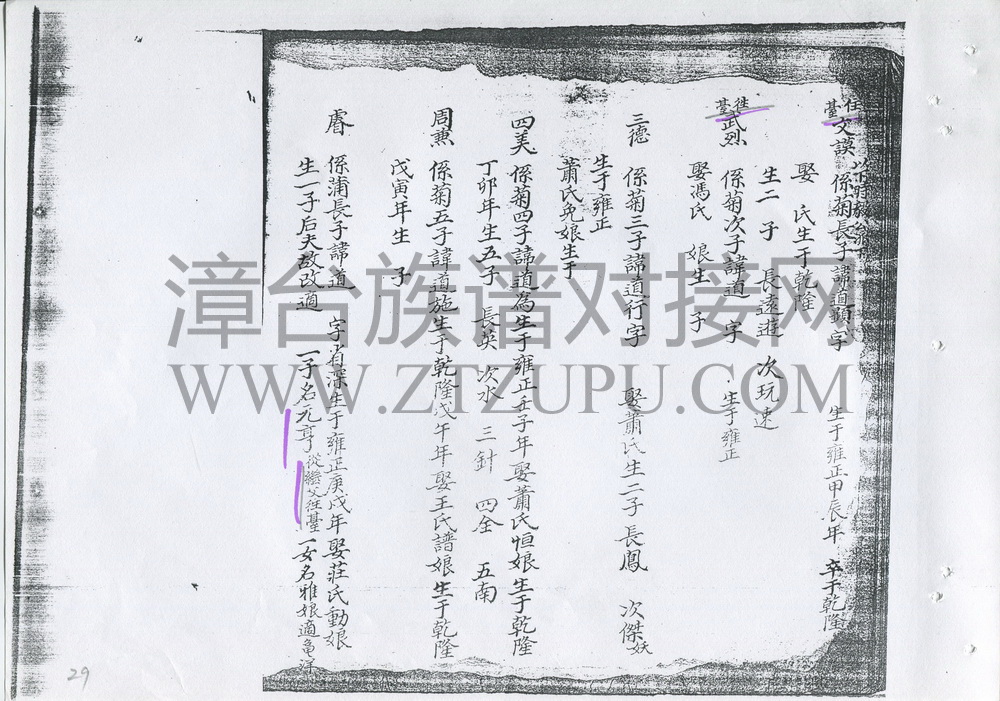 往臺
文謨 係菊長子諱道顯 字 生于雍正甲辰年 卒于乾隆
娶 氏生于乾隆
生二子 長遠遊 次玩速
往臺
武烈 係菊次子諱道 字 生于雍正
娶馮氏 娘生 子
三德 係菊三子諱道行字 娶蕭氏生二子長鳳 次傑妖
生于雍正
蕭氏免娘生于
四美 係菊四子諱道為生于雍正壬子年娶蕭氏恒娘生于乾隆
丁卯年生五子 長英 次水 三針 四全 五南
周煑 係菊五子諱道施生于乾隆戊午年娶王氏譜娘生于乾隆
戊寅年生 子
睿 係蒲長子諱道 字省深生于雍正庚戌年娶莊氏動娘
生一子后夫故改適 一子名元亨從繼父往臺 一女名雅娘適龜洋
漳台族谱对接网
WWW.ZTZUPU.COM
29